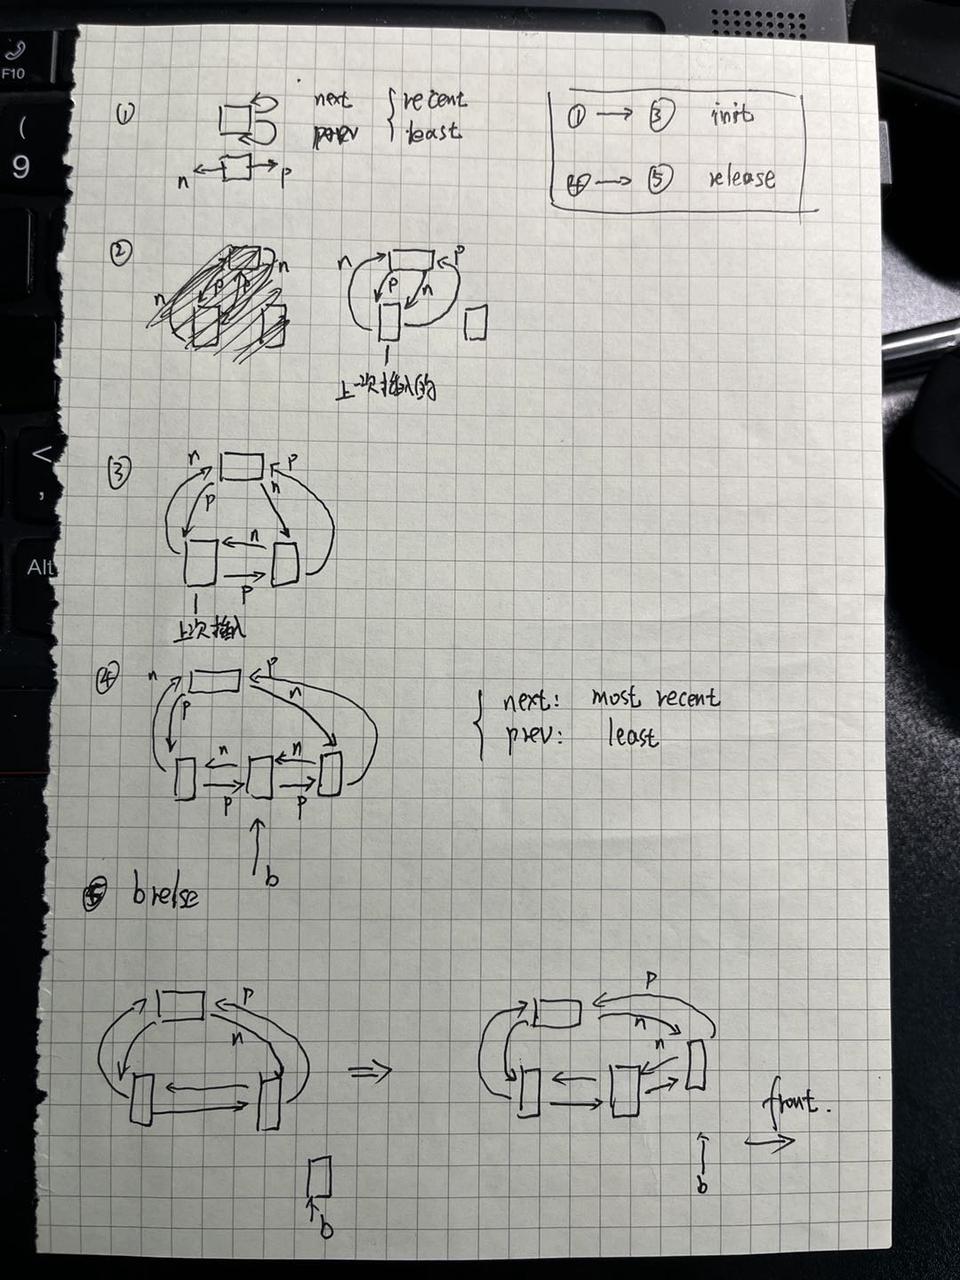 F10
(
9
<
,
Alt
① next { recent
prev least
n p
① → ③ init
④ → ⑤ release
②
n p n p p
n p n p
上一次插入的
③ n p
p n
n
p
上次插入
④ n p
p n
n n
p p
b
{ next: most recent
prev: least
⑤ brelse
p
n
⇒
b
p
n
n
front.
→
b